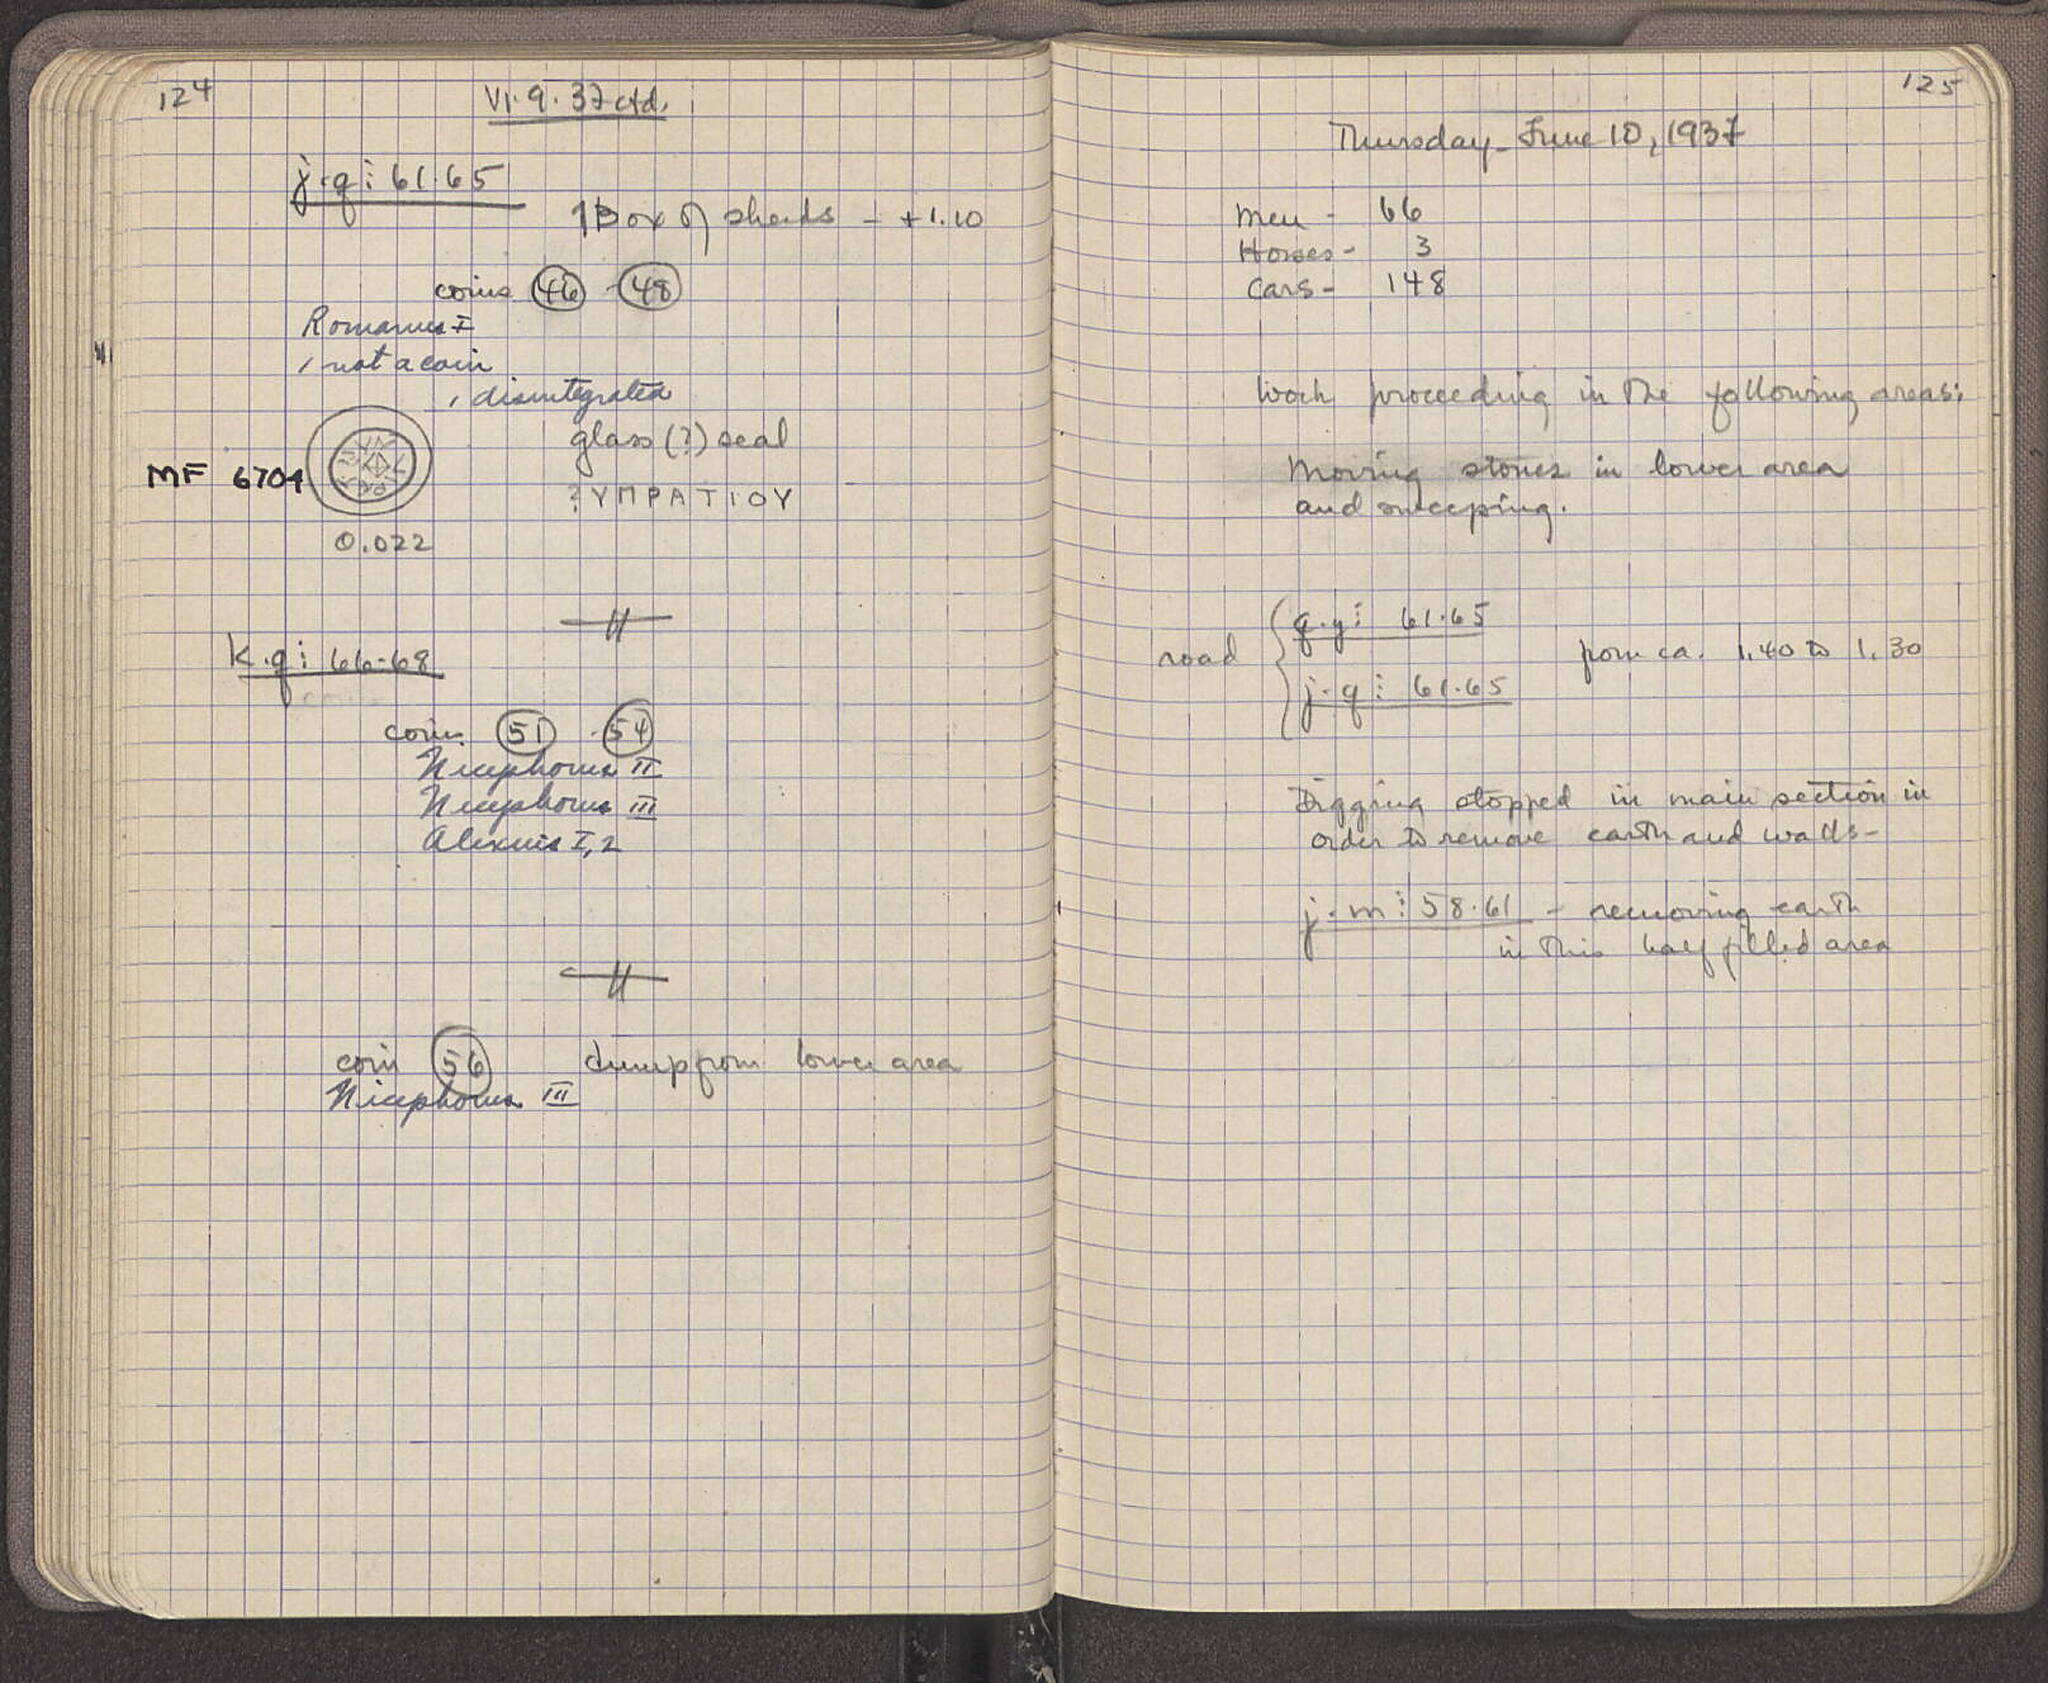 124
VI.9.37 ctd.
j-q: 61-65
1 Box of sherds - +1.10
coins 46 - 48
Romanus I
1 not a coin
1 disintegrated
glass (?) seal
MF 6704
?ΥΠΡΑΤΙΟΥ
0.022
K-q: 66-68
coins 51 - 54
Nicephorus II
Nicephorus III
Alexius I, 2
coin 56 dump from lower area
Nicephorus III
125
Thursday - June 10, 1937
Men - 66
Horses - 3
Cars - 148
Work proceeding in the following areas:
Moving stones in lower area
and sweeping.
q-y: 61-65
road from ca. 1.40 to 1.30
j-q: 61-65
Digging stopped in main section in
order to remove earth and walls -
j-m: 58-61 - removing earth
in this half filled area